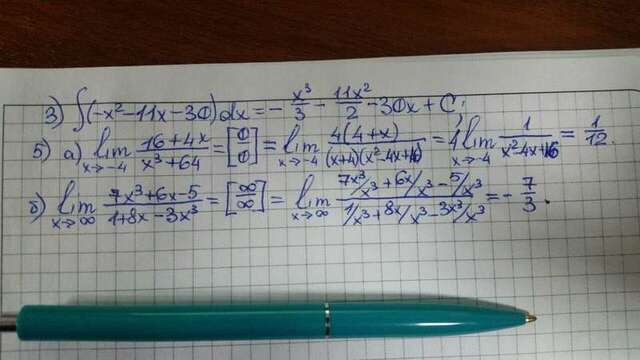 3) ∫(-x²-11x-30)dx = -x³/3 - 11x²/2 - 30x + C;
5) а) lim x→-4 (16+4x)/(x³+64) = [0/0] = lim x→-4 4(4+x)/((x+4)(x²-4x+16)) = 4 lim x→-4 1/(x²-4x+16) = 1/12.
б) lim x→∞ (7x³+6x-5)/(1+8x-3x³) = [∞/∞] = lim x→∞ (7x³/x³+6x/x³-5/x³)/(1/x³+8x/x³-3x³/x³) = -7/3.